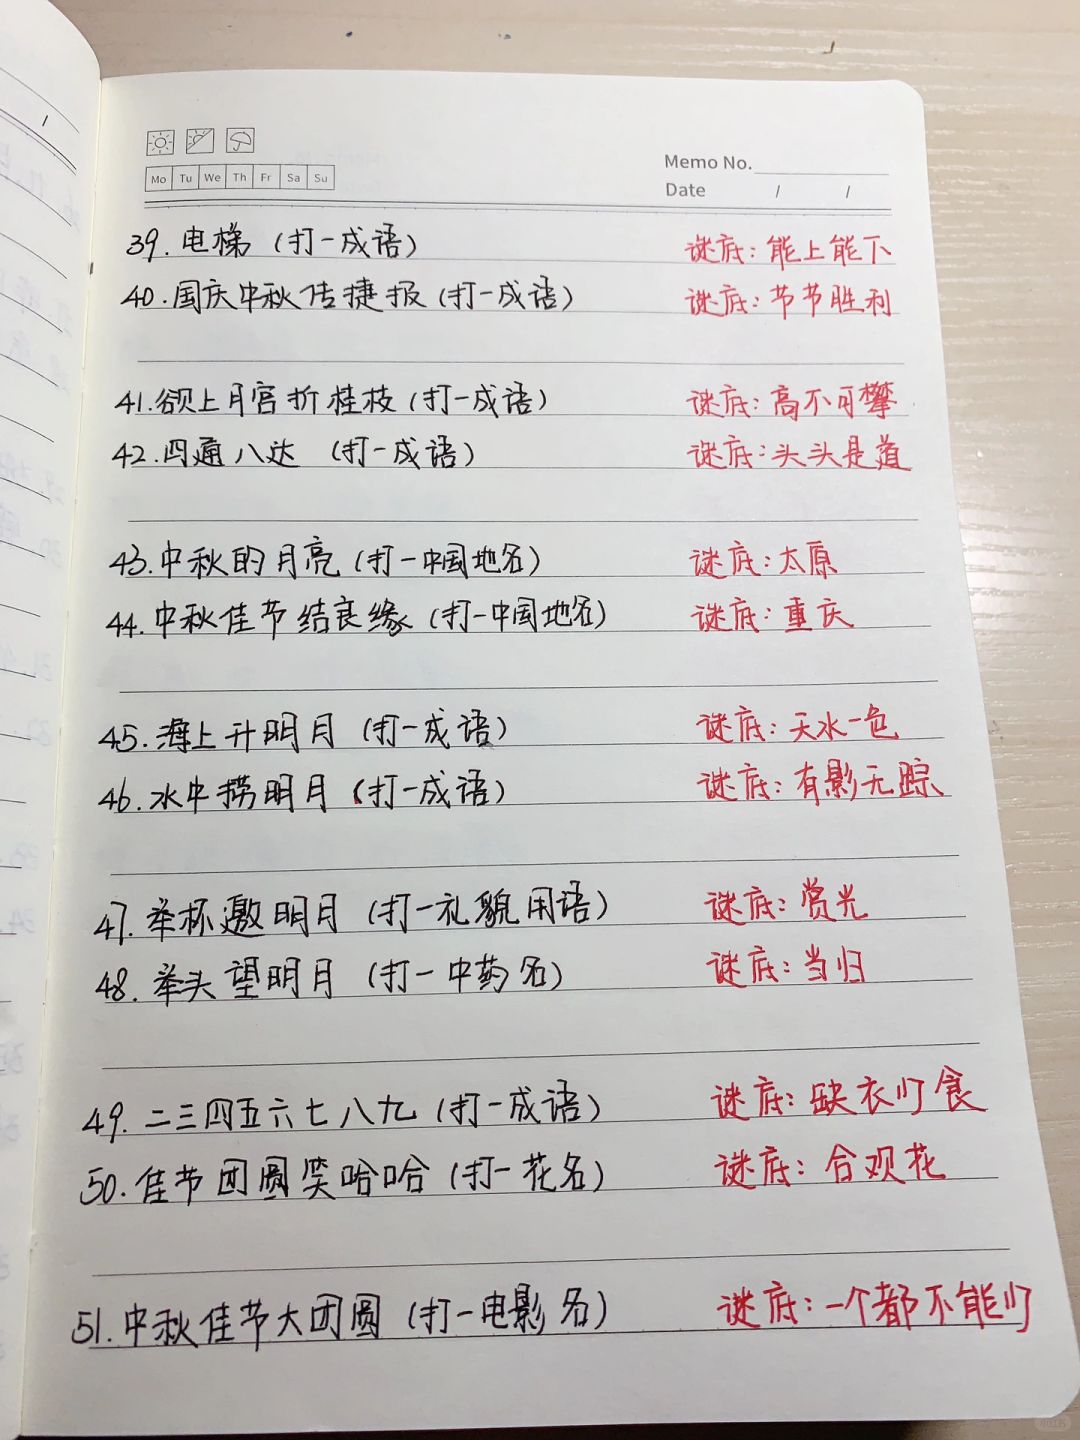 Mo Tu We Th Fr Sa Su
Memo No.
Date / /
39. 电梯 (打一成语) 谜底: 能上能下
40. 国庆中秋传捷报 (打一成语) 谜底: 节节胜利
41. 欲上月宫折桂枝 (打一成语) 谜底: 高不可攀
42. 四通八达 (打一成语) 谜底: 头头是道
43. 中秋的月亮 (打一中国地名) 谜底: 太原
44. 中秋佳节结良缘 (打一中国地名) 谜底: 重庆
45. 海上升明月 (打一成语) 谜底: 天水一色
46. 水中捞明月 (打一成语) 谜底: 有影无踪
47. 举杯邀明月 (打一礼貌用语) 谜底: 赏光
48. 举头望明月 (打一中药名) 谜底: 当归
49. 二三四五六七八九 (打一成语) 谜底: 缺衣少食
50. 佳节团圆笑哈哈 (打一花名) 谜底: 合观花
51. 中秋佳节大团圆 (打一电影名) 谜底: 一个都不能少